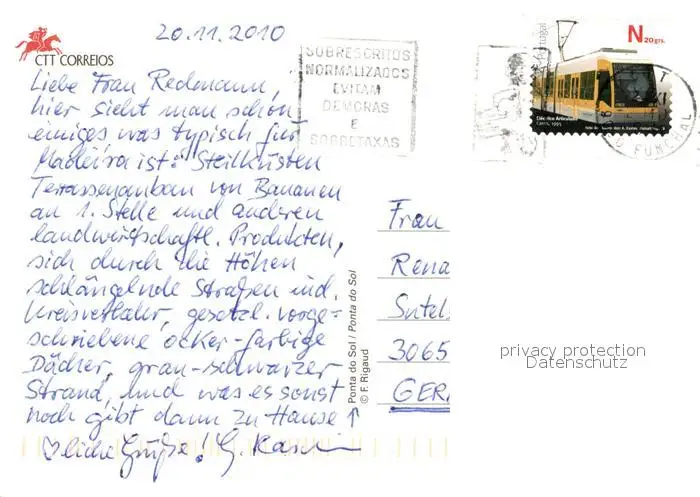 20.11.2010
CTT CORREIOS
Liebe Frau Redmann,
hier sieht man schon
einiges was typisch für
Madeira ist: Steilküsten
Terrassenanbau von Bananen
an 1. Stelle und anderen
landwirtschaftl. Produkten,
sich durch die Höhen
schlängelnde Straßen incl.
Kreisverkehr, gesetzl. vorge-
schriebene ocker-farbige
Dächer, grau-schwarzer
Strand, und was es sonst
noch gibt dann zu Hause ↑
♡liche Grüße! G.
SOBRESCRITOS
NORMALIZADOS
EVITAM
DEMORAS
E
SOBRETAXAS
Portugal
N 20 grs.
Eléctrico Articulado
Carris, 1995
FUNCHAL
Ponta do Sol / Ponta do Sol
© F. Rigaud
Frau
Rena
Sntel
3065
GER
privacy protection
Datenschutz